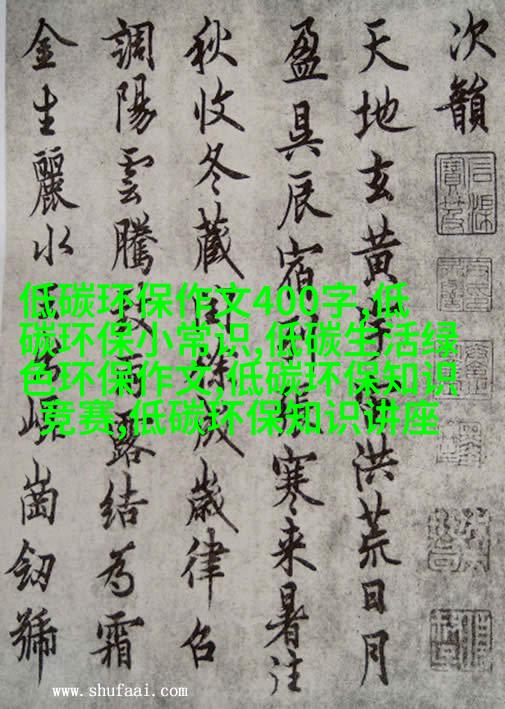 次韻
天地玄黄宇宙洪荒日月
盈昃辰宿列張寒来暑往
秋收冬藏閏餘成歲律召
調陽雲騰致雨露結為霜
金生麗水玉出崐崗劒號
低碳环保作文400字,低
碳环保小常识,低碳生活绿
色环保作文,低碳环保知识
竞赛,低碳环保知识讲座
www.shufaai.com